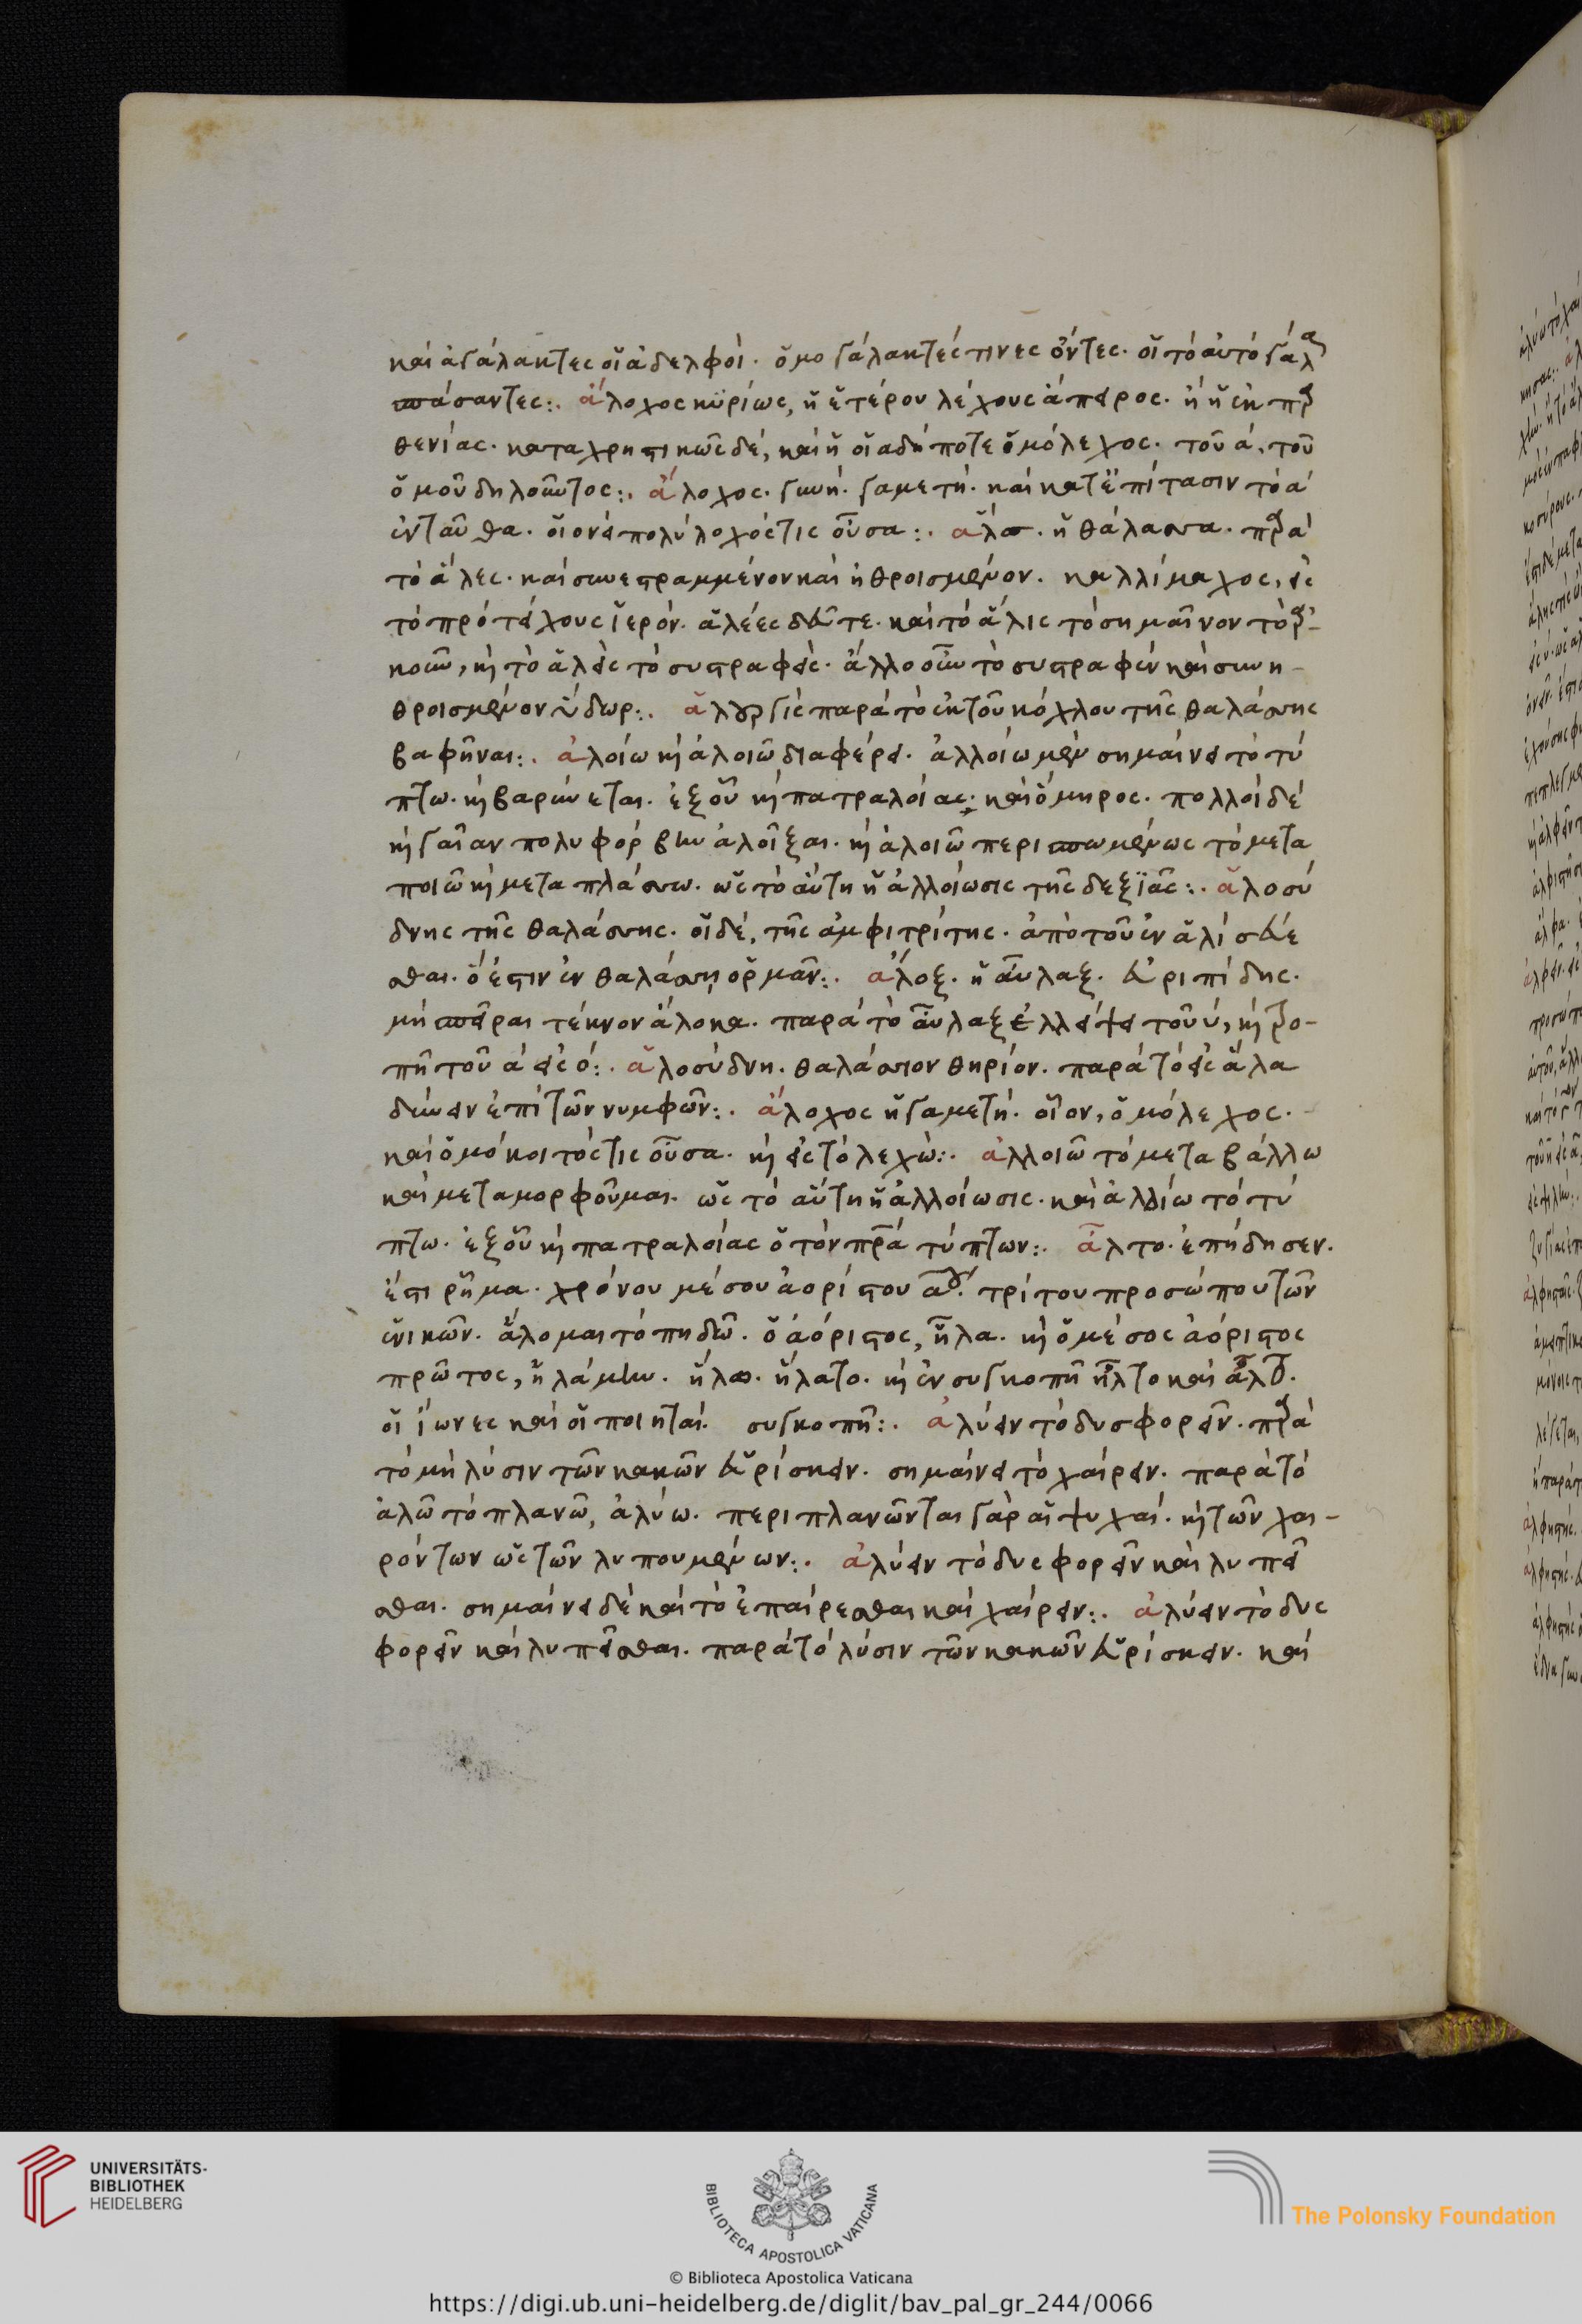 καὶ ἀγάλακτες οἱ ἀδελφοί. ὁμογάλακτές τινες ὄντες. οἱ τὸ αὐτὸ γάλα
σπάσαντες:. ἄλοχος κυρίως, ἡ ἑτέρου λέχους ἄπειρος. ἢ ἡ ἐκ παρ
θενίας. καταχρηστικῶς δέ, καὶ ἡ οἱαδήποτε ὁμόλεχος. τοῦ α, τοῦ
ὁμοῦ δηλοῦντος:. ἄλοχος. γυνή. γαμετή. καὶ κατ' ἐπίτασιν τὸ α
ἐνταῦθα. οἱονεὶ πολύλοχός τις οὖσα:. ἅλς. ἡ θάλασσα. παρὰ
τὸ ἁλές. καὶ συνεστραμμένον καὶ ἠθροισμένον. καλλίμαχος, εἰς
τὸ πρὸ τείχους ἱερόν. ἁλέες δεῦτε. καὶ τὸ ἅλις τὸ σημαῖνον τὸ ἀρ-
κοῦν, καὶ τὸ ἁλεὶς τὸ συστραφείς. ἄλλο οὖν τὸ συστραφὲν καὶ συνη-
θροισμένον ὕδωρ:. ἁλουργὶς παρὰ τὸ ἐκ τοῦ κόχλου τῆς θαλάσσης
βαφῆναι:. ἀλοίω καὶ ἀλοιῶ διαφέρει. ἀλλοίω μὲν σημαίνει τὸ τύ
πτω. καὶ βαρύνεται. ἐξ οὗ καὶ πατραλοίας. καὶ ὅμηρος. πολλοὶ δὲ
καὶ γαῖαν πολυφόρβην ἀλοῖξαι. καὶ ἀλοιῶ περισπωμένως τὸ μετα
ποιῶ καὶ μεταπλάσσω. ὡς τὸ αὕτη ἡ ἀλλοίωσις τῆς δεξιᾶς:. ἁλοσύ
δνης τῆς θαλάσσης. οἱ δέ, τῆς ἀμφιτρίτης. ἀπὸ τοῦ ἐν ἁλὶ σεύε
σθαι. ὅ ἐστιν ἐν θαλάσσῃ ὁρμᾶν:. ἄλοξ. ἡ αὖλαξ. εὐριπίδης.
μὴ σπεῖραι τέκνον ἄλοκα. παρὰ τὸ αὖλαξ ἐλλείψει τοῦ υ, καὶ τρο-
πῇ τοῦ α εἰς ο:. ἁλοσύδνη. θαλάσσιον θηρίον. παρὰ τὸ εἰς ἅλα
δύνειν ἐπὶ τῶν νυμφῶν:. ἄλοχος ἡ γαμετή. οἷον, ὁμόλεχος.
καὶ ὁμόκοιτός τις οὖσα. καὶ εἰς τὸ λεχώ:. ἀλλοιῶ τὸ μεταβάλλω
καὶ μεταμορφοῦμαι. ὡς τὸ αὕτη ἡ ἀλλοίωσις. καὶ ἀλλίω τὸ τύ
πτω. ἐξ οὗ καὶ πατραλοίας ὁ τὸν πρα τύπτων:. ἆλτο. ἐπήδησεν.
ἔστι ῥῆμα. χρόνου μέσου ἀορίστου α. τρίτου προσώπου τῶν
ἑνικῶν. ἅλομαι τὸ πηδῶ. ὁ ἀόριστος, ἧλα. καὶ ὁ μέσος ἀόριστος
πρῶτος, ἡλάμην. ἥλω. ἥλατο. καὶ ἐν συγκοπῇ ἧλτο καὶ ἆλτο.
οἱ ἴωνες καὶ οἱ ποιηταί. συγκοπῇ:. ἀλύειν τὸ δυσφορεῖν. παρὰ
τὸ μὴ λύσιν τῶν κακῶν εὑρίσκειν. σημαίνει τὸ χαίρειν. παρὰ τὸ
ἀλῶ τὸ πλανῶ, ἀλύω. περιπλανῶνται γὰρ αἱ ψυχαί. καὶ τῶν χαι-
ρόντων ὡς τῶν λυπουμένων:. ἀλύειν τὸ δυσφορεῖν καὶ λυπεῖ
σθαι. σημαίνει δὲ καὶ τὸ ἐπαίρεσθαι καὶ χαίρειν:. ἀλύειν τὸ δυς
φορεῖν καὶ λυπεῖσθαι. παρὰ τὸ λύσιν τῶν κακῶν εὑρίσκειν. καὶ
UNIVERSITÄTS-
BIBLIOTHEK
HEIDELBERG
BIBLIOTECA APOSTOLICA VATICANA
The Polonsky Foundation
© Biblioteca Apostolica Vaticana
https://digi.ub.uni-heidelberg.de/diglit/bav_pal_gr_244/0066